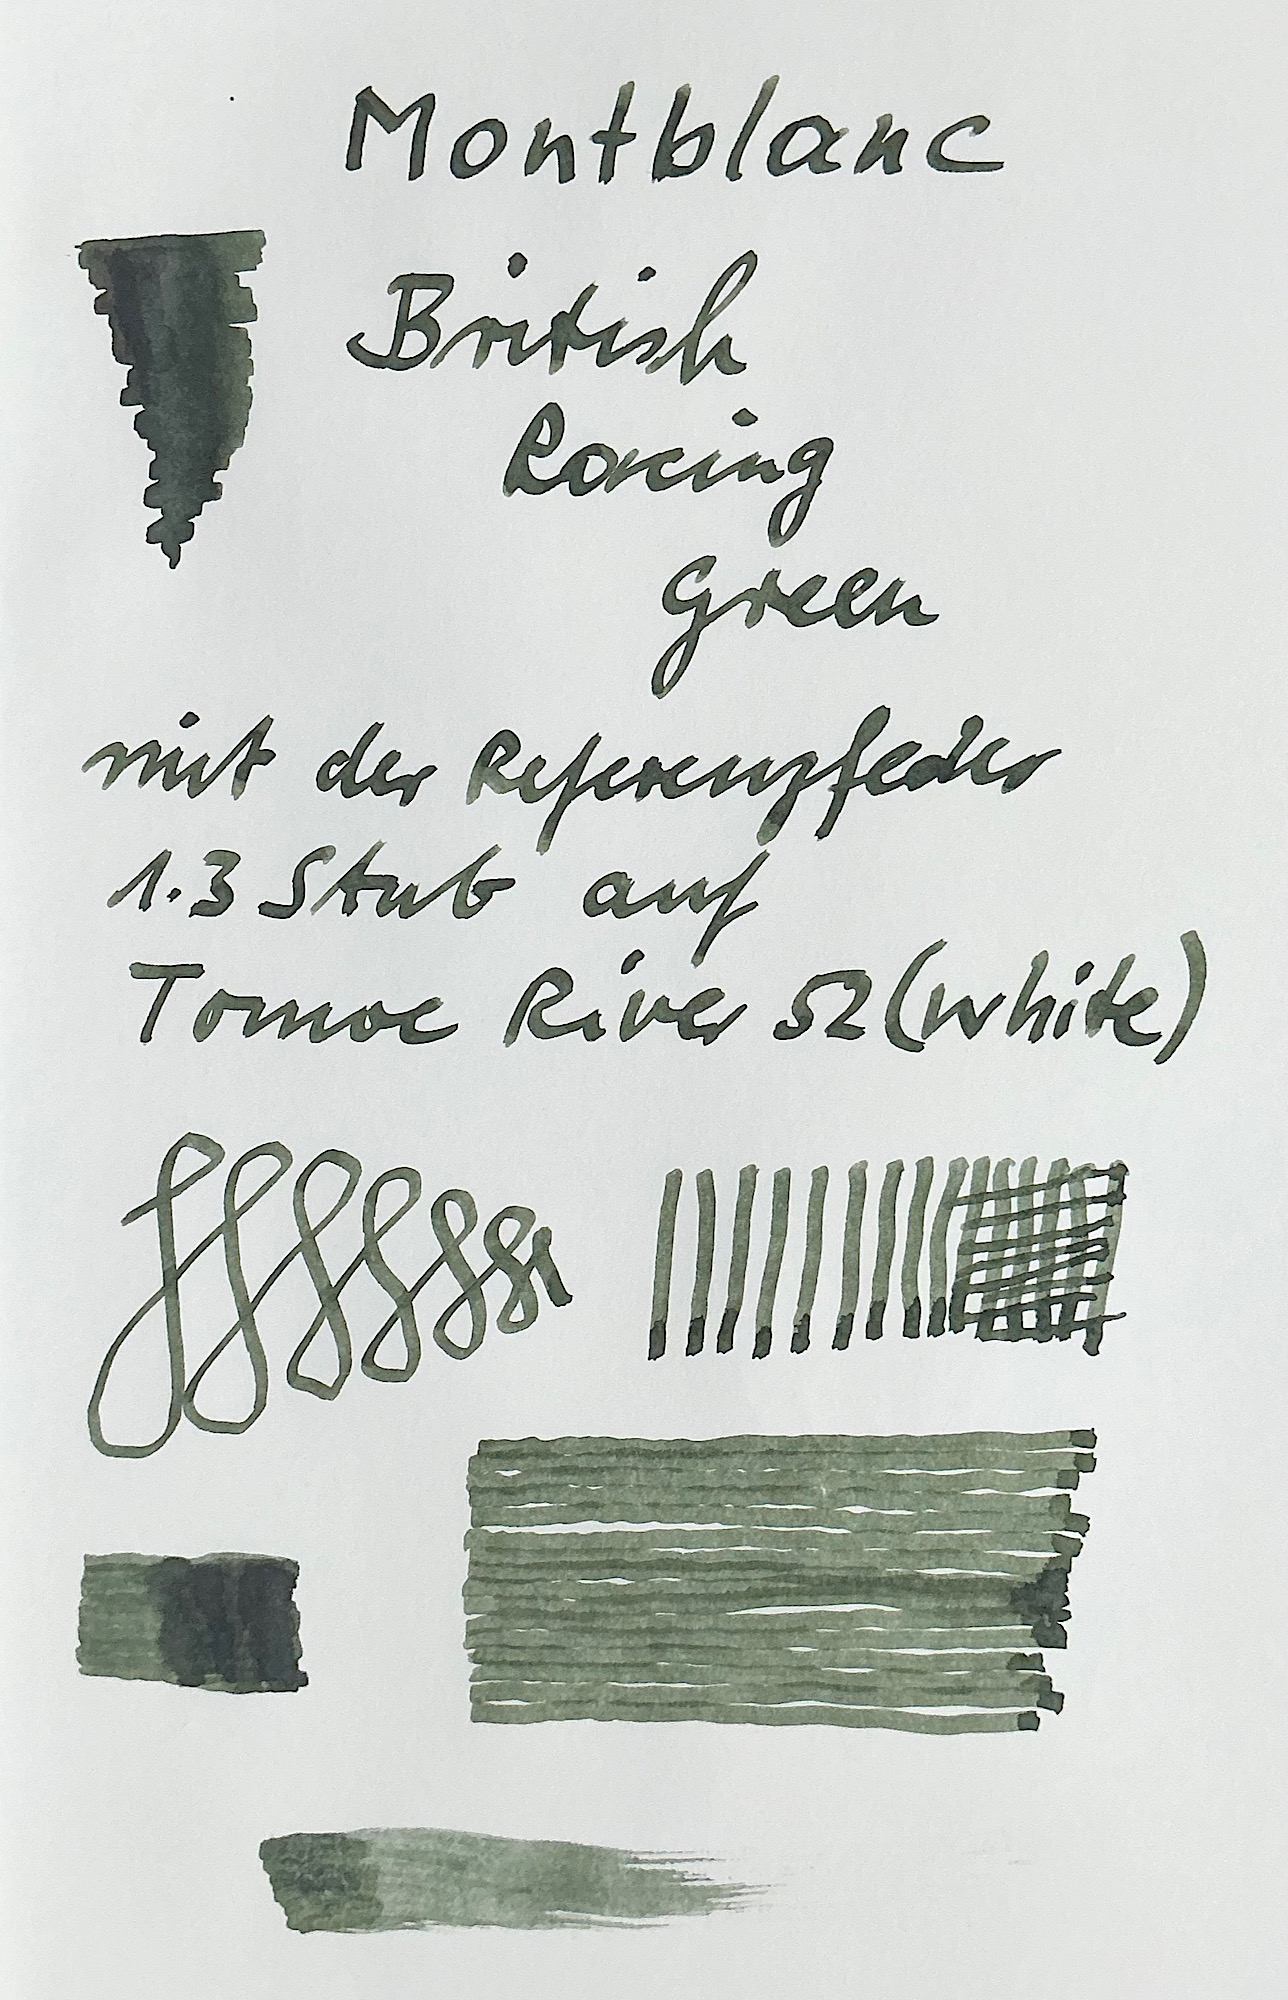 Montblanc
British
Racing
Green
mit der Referenzfeder
1.3 Stub auf
Tomoe River 52 (white)